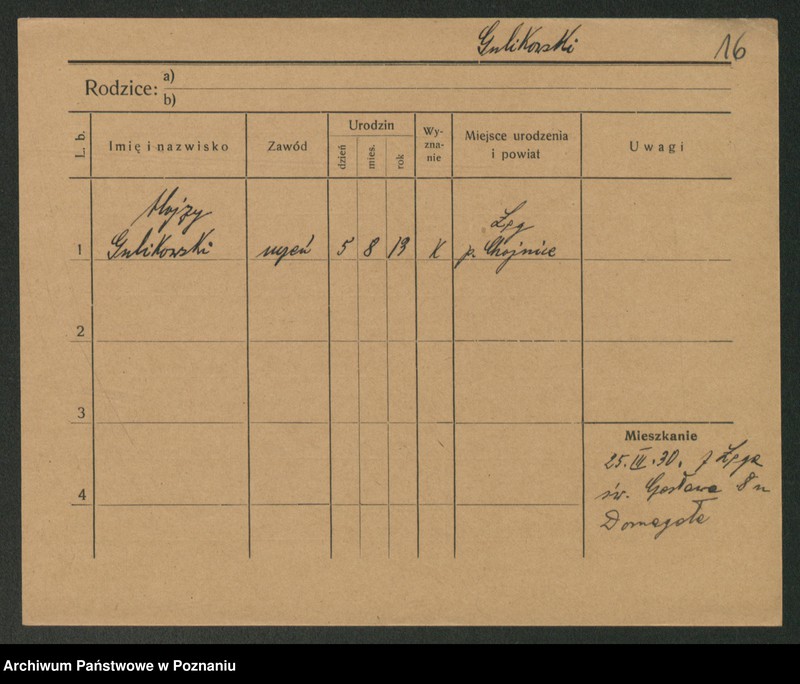 Gulikowski 16
Rodzice: a)
b)
L. b. Imię i nazwisko Zawód Urodzin dzień mies. rok Wy-zna-nie Miejsce urodzenia i powiat Uwagi
Alojzy Łąg
1 Gulikowski uczeń 5 8 13 K p. Chojnice
2
3
Mieszkanie
25. 30. z
4 św. 8 u
Domagała
Archiwum Państwowe w Poznaniu